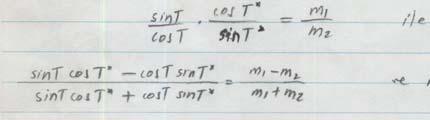 sinT/cosT · cosT*/sinT* = m₁/m₂ i/e
(sinT cosT* − cosT sinT*)/(sinT cosT* + cosT sinT*) = (m₁−m₂)/(m₁+m₂) ve